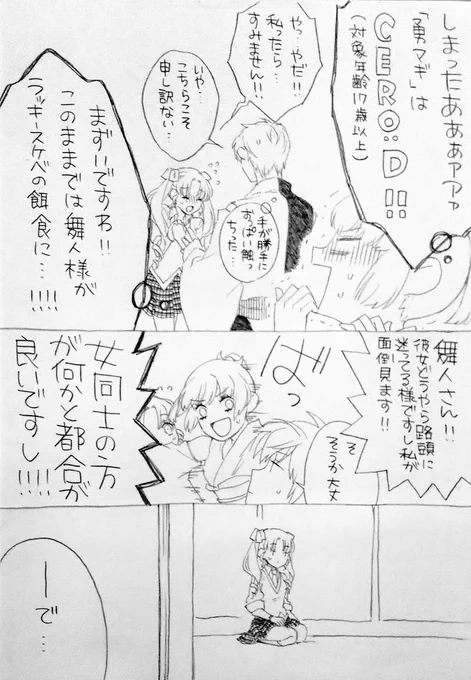 しまったあああァァァ
「勇マギ」は
CERO:D!!
(対象年齢17歳以上)
やっ…やだ!!
私ったら…
すみません!!
いや…
こちらこそ
申し訳ない…
手が勝手に
おっぱい触っ
ちった…
まずいですわ!!
このままでは舞人様が
ラッキースケベの餌食に…!!!!
舞人さん!!
彼女どうやら路頭に
迷ってる様ですし私が
面倒見ます!!
ばっ
そ
そうか大丈
女同士の方
が何かと都合が
良いですし!!!!
ーで…